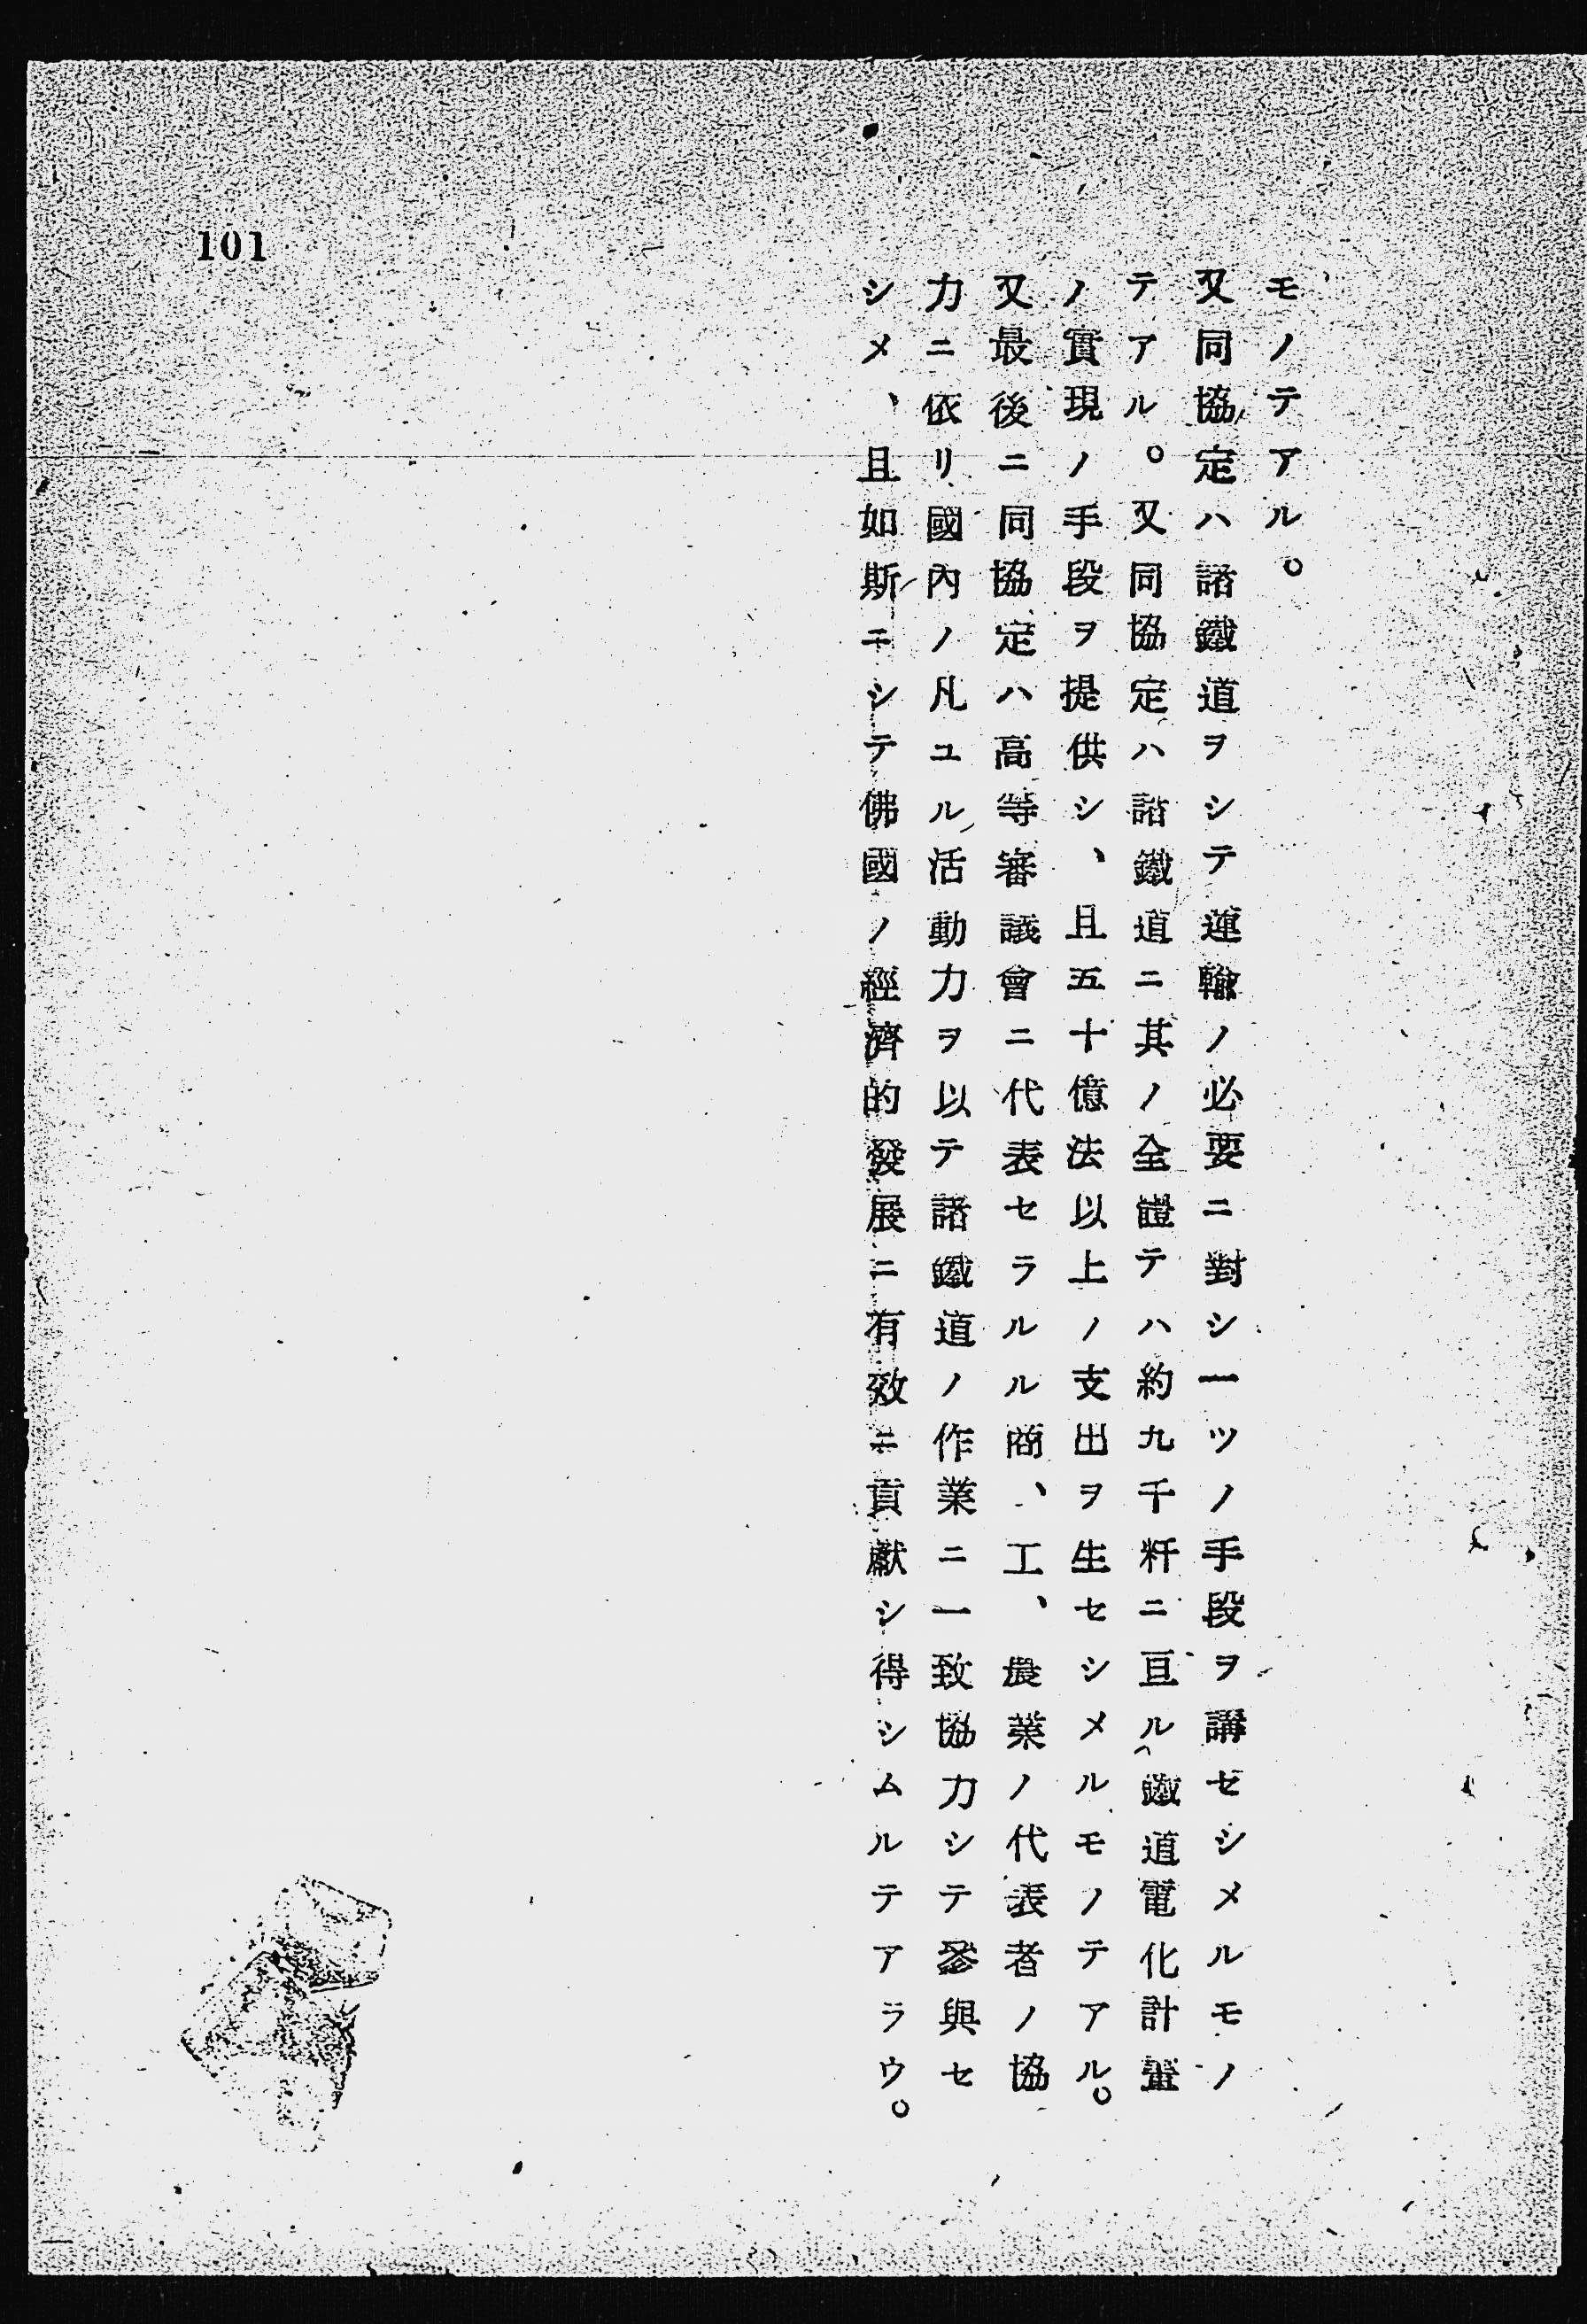 モノテアル。
又同協定ハ諸鐵道ヲシテ運輸ノ必要ニ對シ一ツノ手段ヲ講セシメルモノ
テアル。又同協定ハ諸鐵道ニ其ノ全體テハ約九千粁ニ亘ル鐵道電化計畫
ノ實現ノ手段ヲ提供シ、且五十億法以上ノ支出ヲ生セシメルモノテアル。
又最後ニ同協定ハ高等審議會ニ代表セラルル商、工、農業ノ代表者ノ協
力ニ依リ國內ノ凡ユル活動力ヲ以テ諸鐵道ノ作業ニ一致協力シテ參與セ
シメ、且如斯ニシテ佛國ノ經濟的發展ニ有效ニ貢獻シ得シムルテアラウ。
101